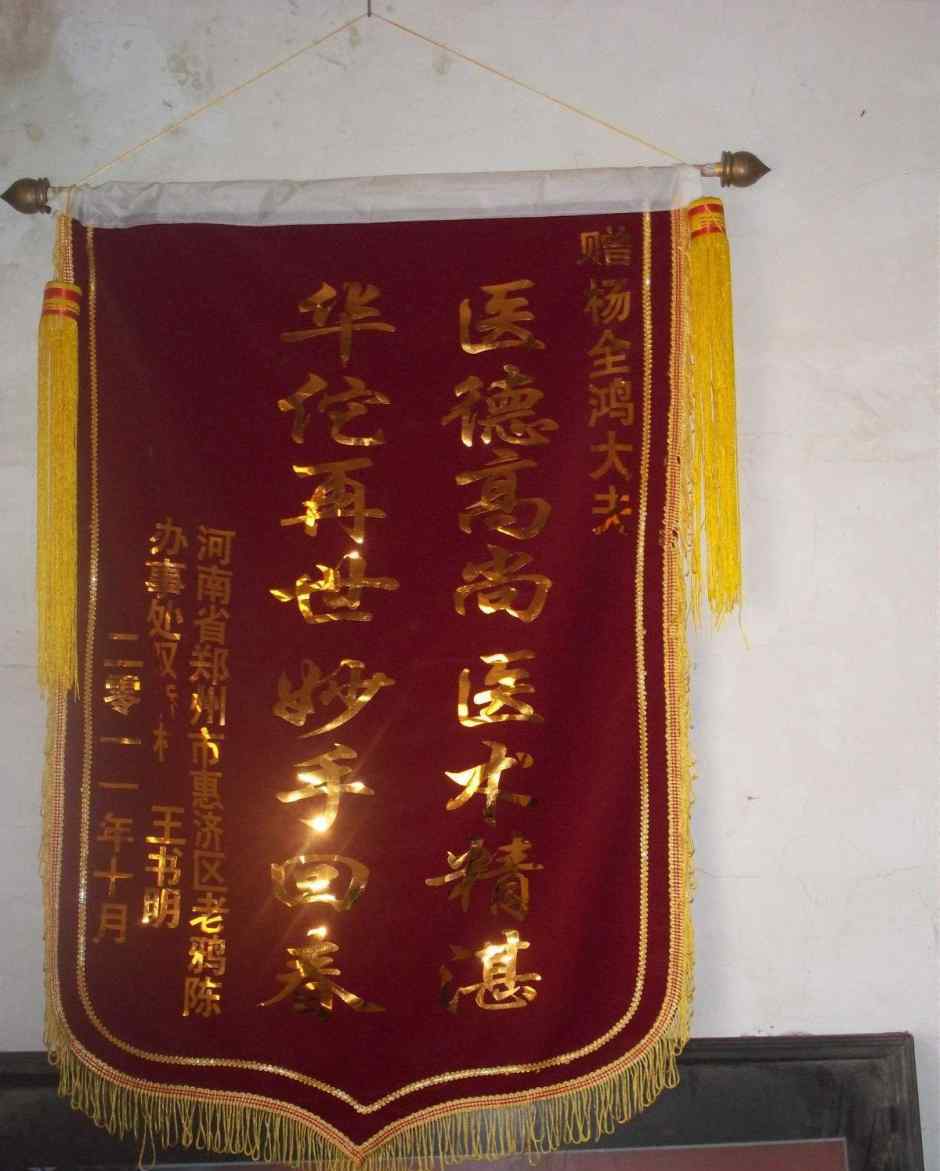 赠杨全鸿大夫
医德高尚 医术精湛
华佗再世 妙手回春
河南省郑州市惠济区老鸦陈
办事处双 村 王书明
二零一一年十月